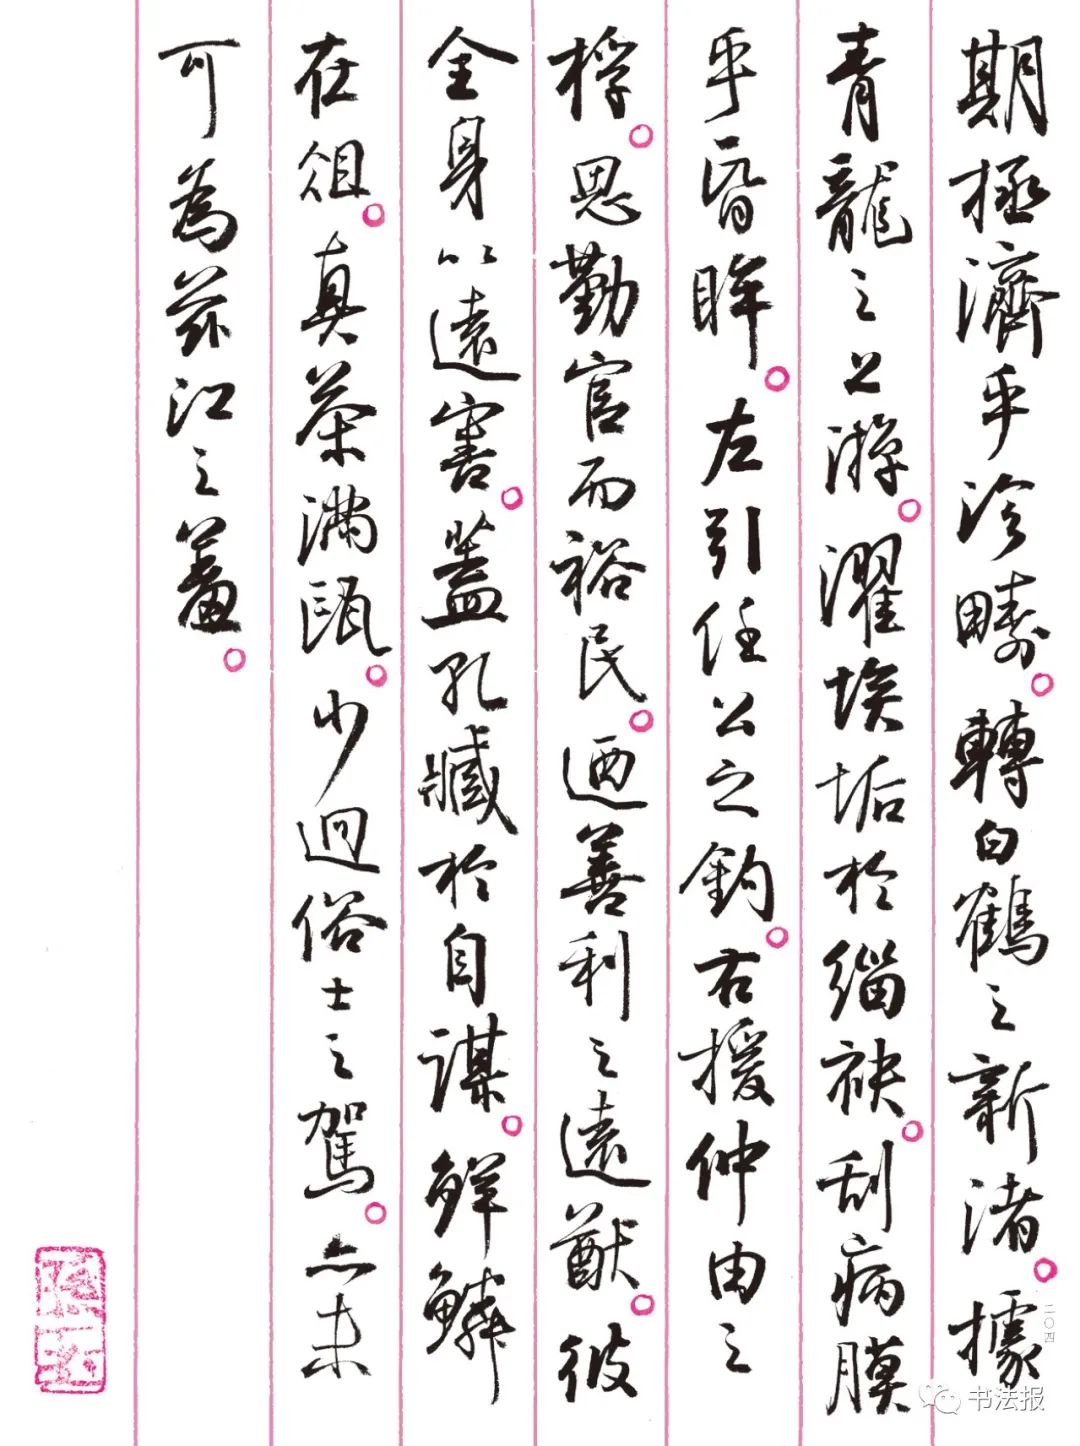 期極濟乎沴疇。轉白鶴之新渚。據
青龍之上游。濯埃垢於緇袂。刮病膜
乎昏眸。左引任公之釣。右援仲由之
桴。思勤官而裕民。迺善利之遠猷。彼
全身以遠害。蓋孔臧於自謀。鮮鱗
在俎。真茶滿甌。少迴俗士之駕。亦未
可為茲江之羞。
二〇四
书法报